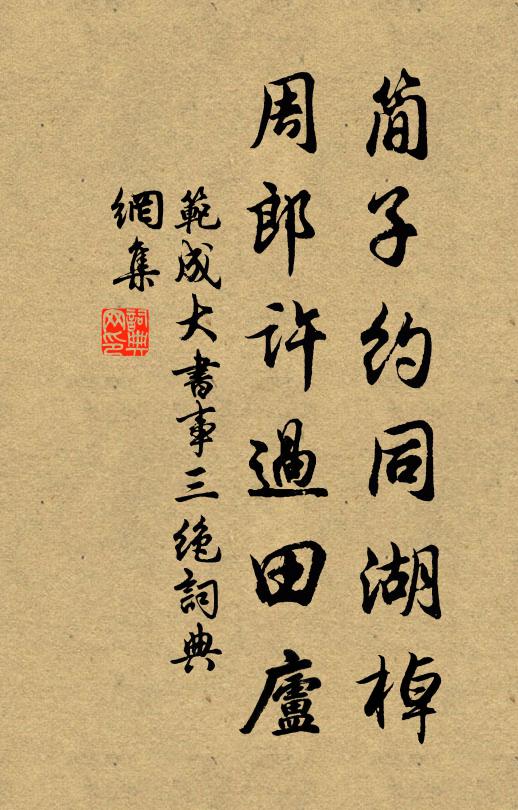 简子约同湖棹
周郎许過田廬
範成大書事三绝詞典
網集
詞典
网印